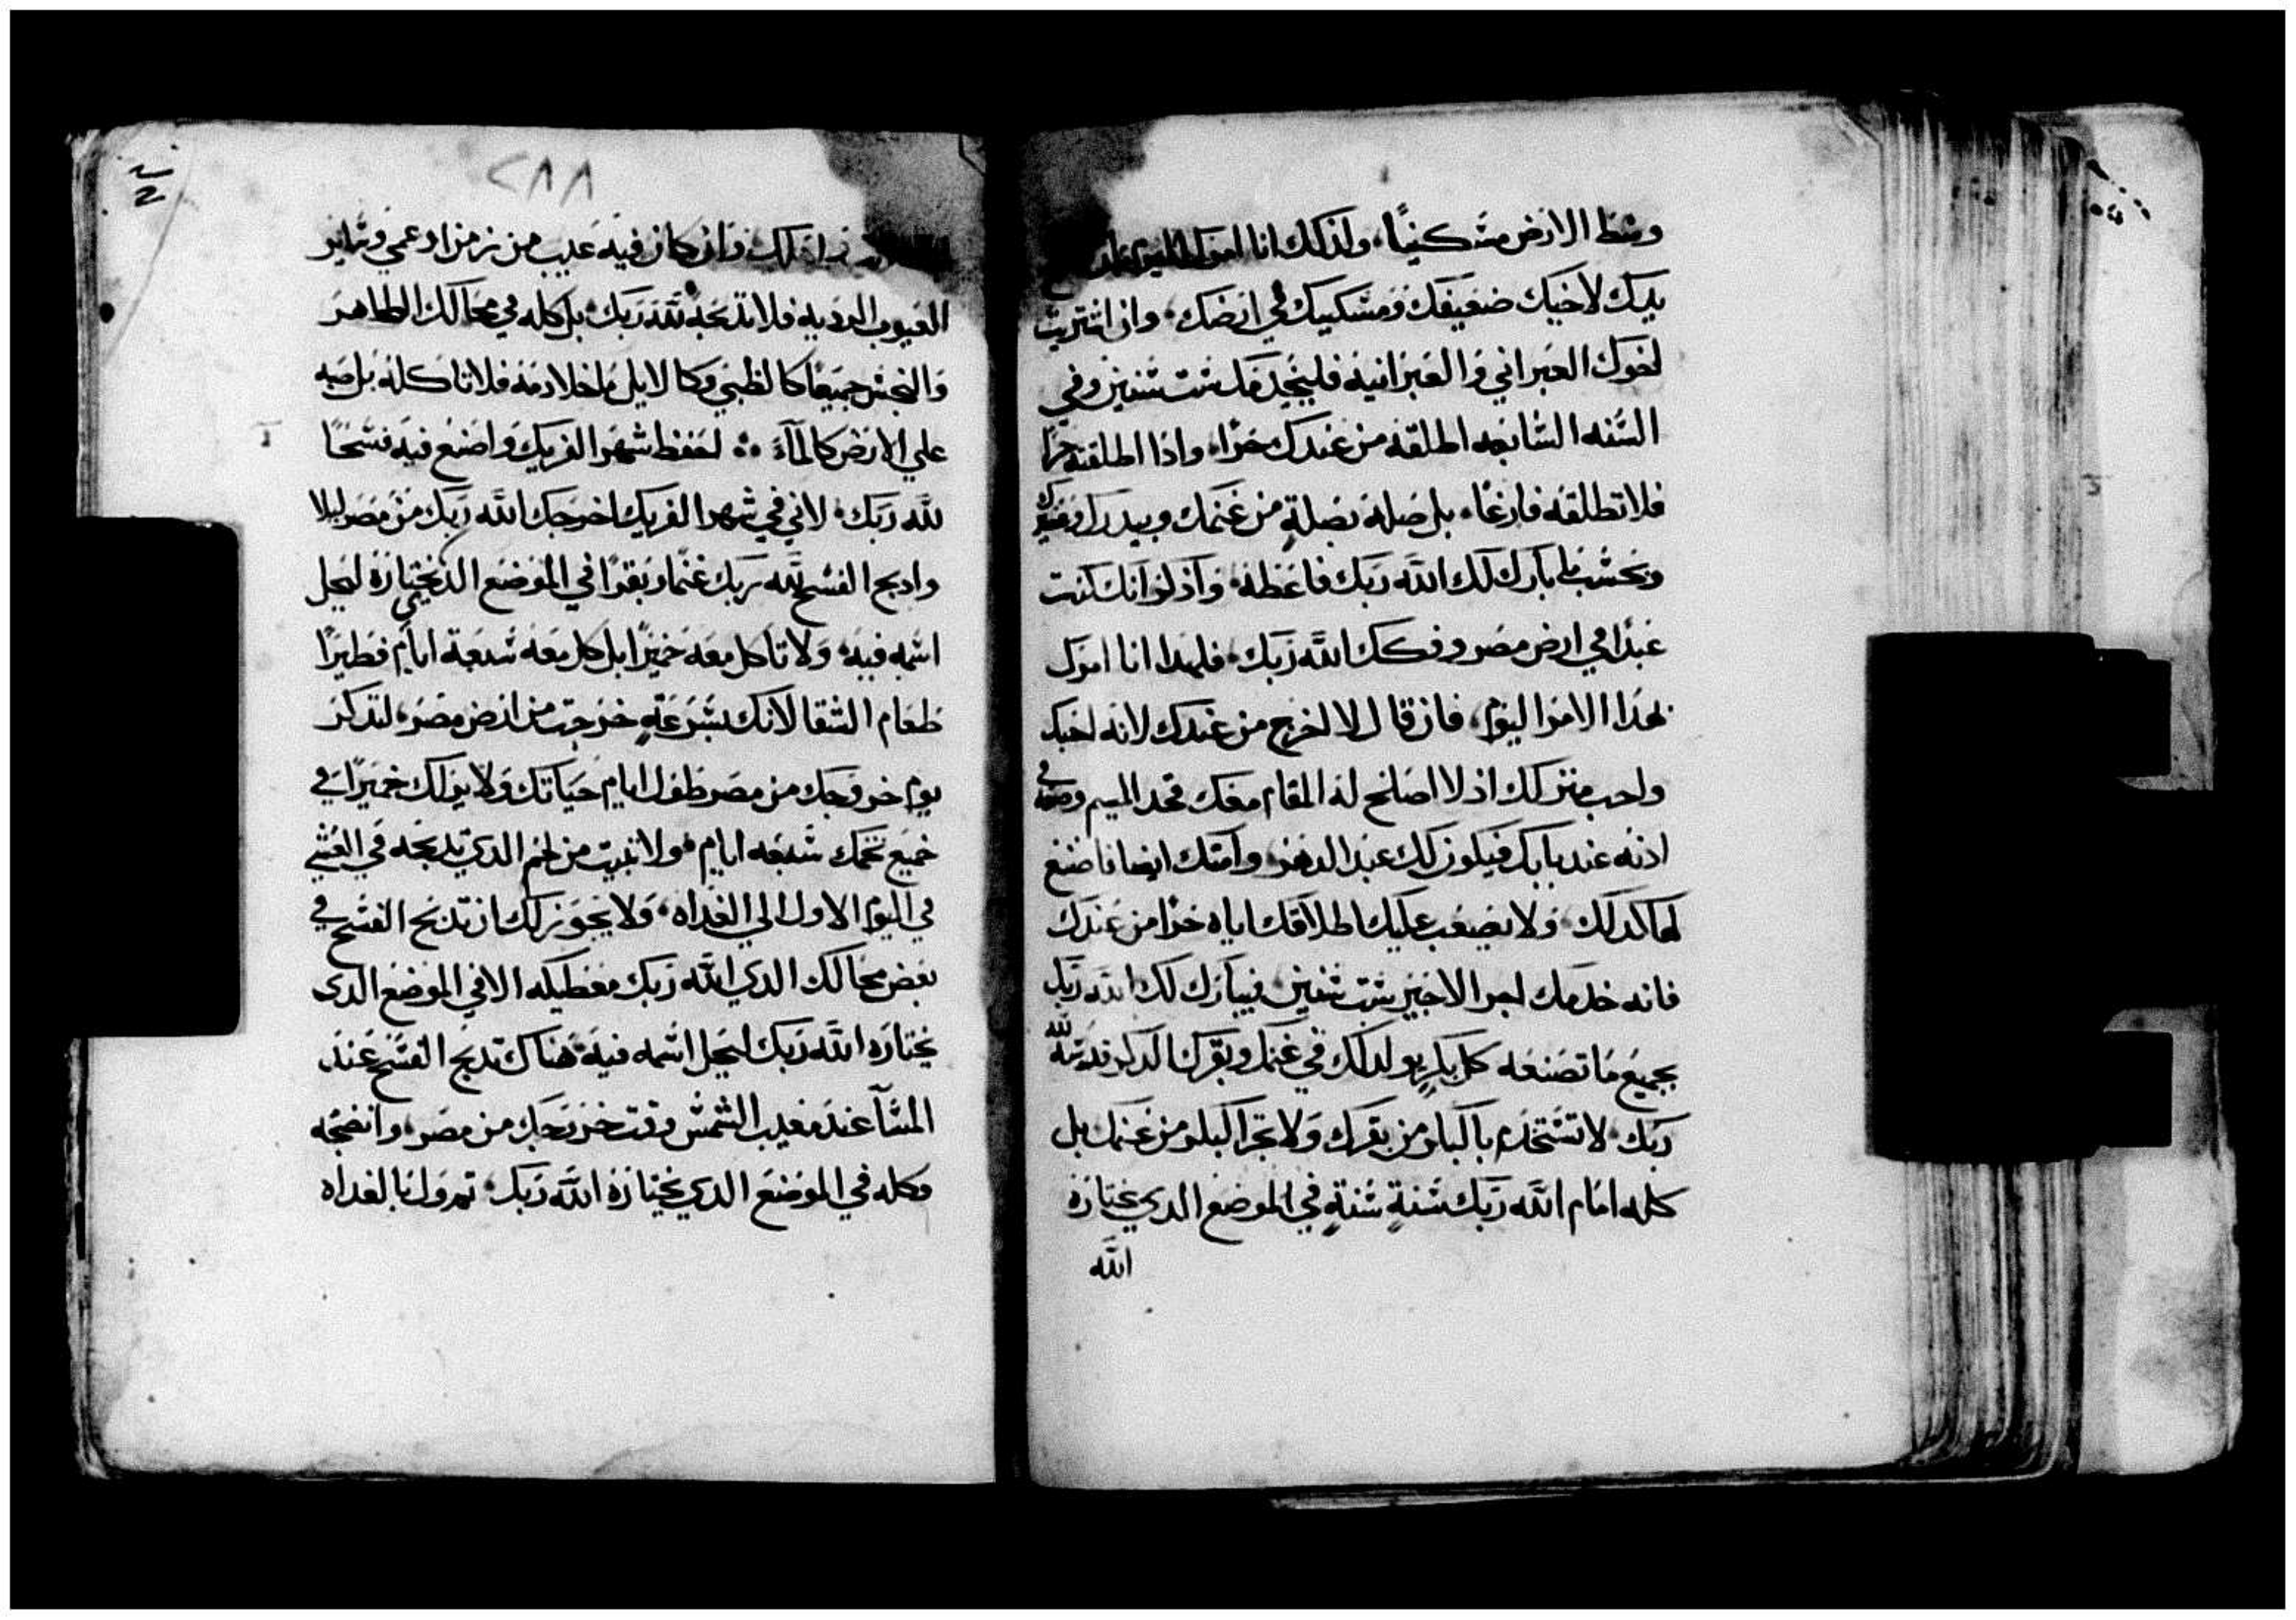 وسط الارض مسكنيًا، ولذلك انا امرك اليوم
يدك لاخيك ضعيفك ومسكينك في ارضك، وان اشتريت
اخوك العبراني والعبرانية فليخدمك ست سنين وفي
السنه السابعه اطلقه من عندك حرا، واذا اطلقته حرا
فلا تطلقه فارغا، بل صله بصلةٍ من غنمك وبيدرك
وبحسب ما بارك لك الله ربك فاعطه، واذكر انك كنت
عبدا في ارض مصر وفكك الله ربك، فلهذا انا امرك
بهذا الامر اليوم، فان قال لا اخرج من عندك لانه احبك
واحب منزلك اذ لا اصلح له المقام معك فخد الميسم وضعه في
ادنه عند بابك فيكون لك عبد الدهر، وامتك ايضا فاصنع
لها كدلك، ولا يصعب عليك اطلاقك اياه حرا من عندك
فانه خدمك اجر الاجير ست سنين، فيبارك لك الله ربك
بجميع ما تصنعه كل بكرٍ يولد لك في غنمك وبقرك الدكر قدسه لله
ربك، لا تستخدم بالبكر من بقرك ولا تجز البكر من غنمك بل
كله امام الله ربك سنةٍ سنةٍ في الموضع الدي يختاره
الله
٢٨٨
وان كان فيه عيب من زمن او عمي وساير
العيوب الرديه فلا تدبحه لله ربك، بل كله في محالك الطاهر
والنجس جميعا كالظبي وكالايل ما خلا دمه فلا تاكله بل صبه
علي الارض كالمآء ؞ احفظ شهر الفريك واصنع فيه فسحًا
لله ربك، لاني في شهر الفريك اخرجك الله ربك من مصر ليلا
وادبح الفسح لله ربك غنما وبقرا في الموضع الدي يختاره ليحل
اسمه فيه، ولا تاكل معه خميرا بل كل معه سبعة ايام فطيرًا
طعام الشقا لانك بسرعةٍ خرجت من ارض مصر، لتدكر
يوم خروجك من مصر طول ايام حياتك ولا يرا لك خميرًا في
جميع تخمك سبعه ايام، ولا تبيت من لحم الدي تدبحه في العشي
في اليوم الاول الي الغداه، ولا يجوز لك ان تدبح الفسح في
بعض محالك الدي الله ربك معطيكه الا في الموضع الدى
يختاره الله ربك ليحل اسمه فيه، هناك تدبح الفسح عند
المسآ عند مغيب الشمس وقت خروجك من مصر، وانضجه
وكله في الموضع الدي يختاره الله ربك، ثم ول بالغداه